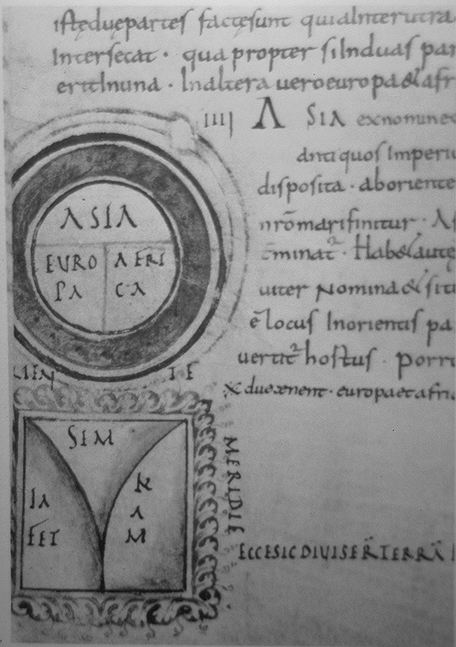 istę due partes factę sunt quia Inter utra
Intersecat · qua propter si Induas par
erit In una · In altera uero europa & afr
IIII ASIA ex nomine
antiquos Imperi
disposita · aboriente
nr̄o mari finitur · As
Habet aute
uiter Nomina & siti
ē locus In orientis pa
hortus · porri
duę · europa et afri
ASIA
EURO
PA
AFRI
CA
TE
SIM
IA
FET
KAM
MERIDIE
ECCE SIC DIVISER̄ TERRĀ